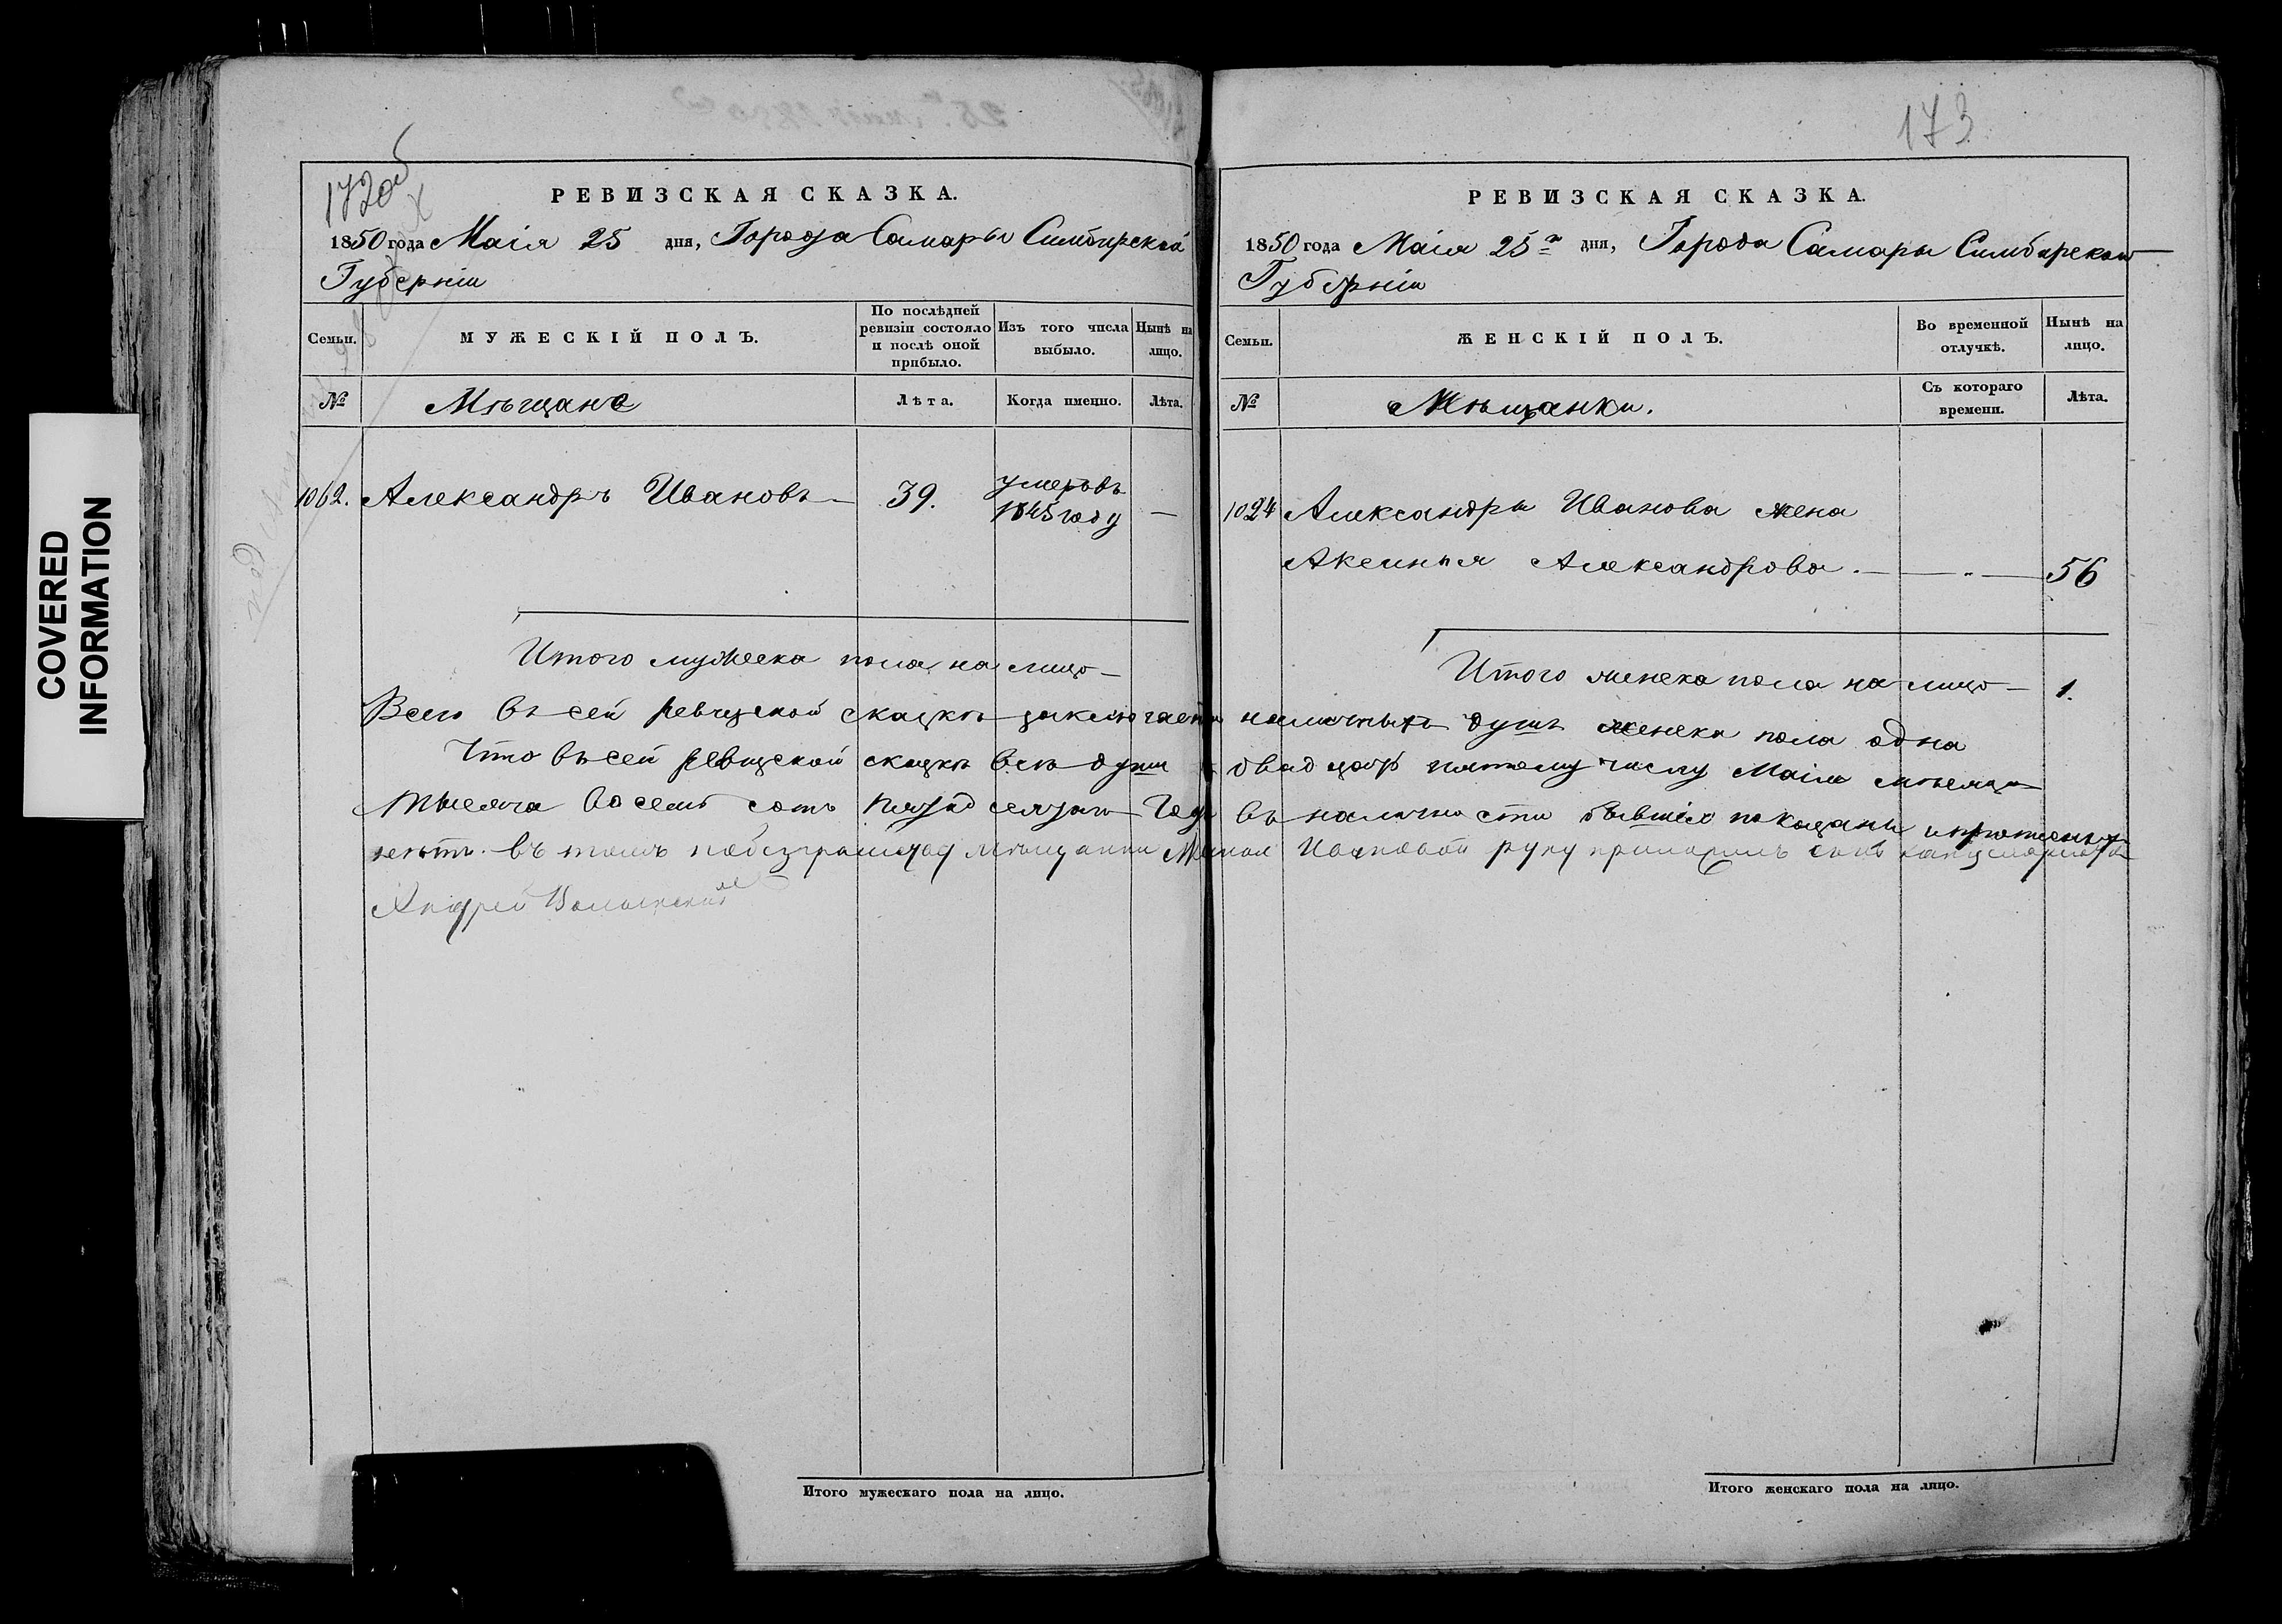 COVERED
INFORMATION
172об
РЕВИЗСКАЯ СКАЗКА.
1850 года Маія 25 дня, Города Самары Симбирской
Губерніи
Семьи.
МУЖЕСКІЙ ПОЛЪ.
По послѣдней
ревизіи состояло
и послѣ оной
прибыло.
Изъ того числа
выбыло.
Нынѣ на
лицо.
№
Мѣщане
Лѣта.
Когда именно.
Лѣта.
1062. Александръ Ивановъ — 39. умеръ въ
1845 году —
Итого мужеска пола на лицо —
173
РЕВИЗСКАЯ СКАЗКА.
1850 года Маія 25го дня, Города Самары Симбирской
Губерніи
Семьи.
ЖЕНСКІЙ ПОЛЪ.
Во временной
отлучкѣ.
Нынѣ на
лицо.
№
Мѣщанки.
Съ котораго
времени.
Лѣта.
1024 Александра Иванова жена
Аксинья Александрова. — 56
Итого женска пола на лицо — 1.
Всего въ сей ревизской сказкѣ заключается наличныхъ душъ женска пола одна
Что въ сей ревизской сказкѣ всѣ души к двадцать пятому числу Маія мѣсяца
тысяча восемь сотъ пятьдесятаго года въ наличности бывшіе показаны и
нѣтъ. въ томъ мѣщанки Ивановой руку приложилъ
Андрей
Итого мужескаго пола на лицо.
Итого женскаго пола на лицо.